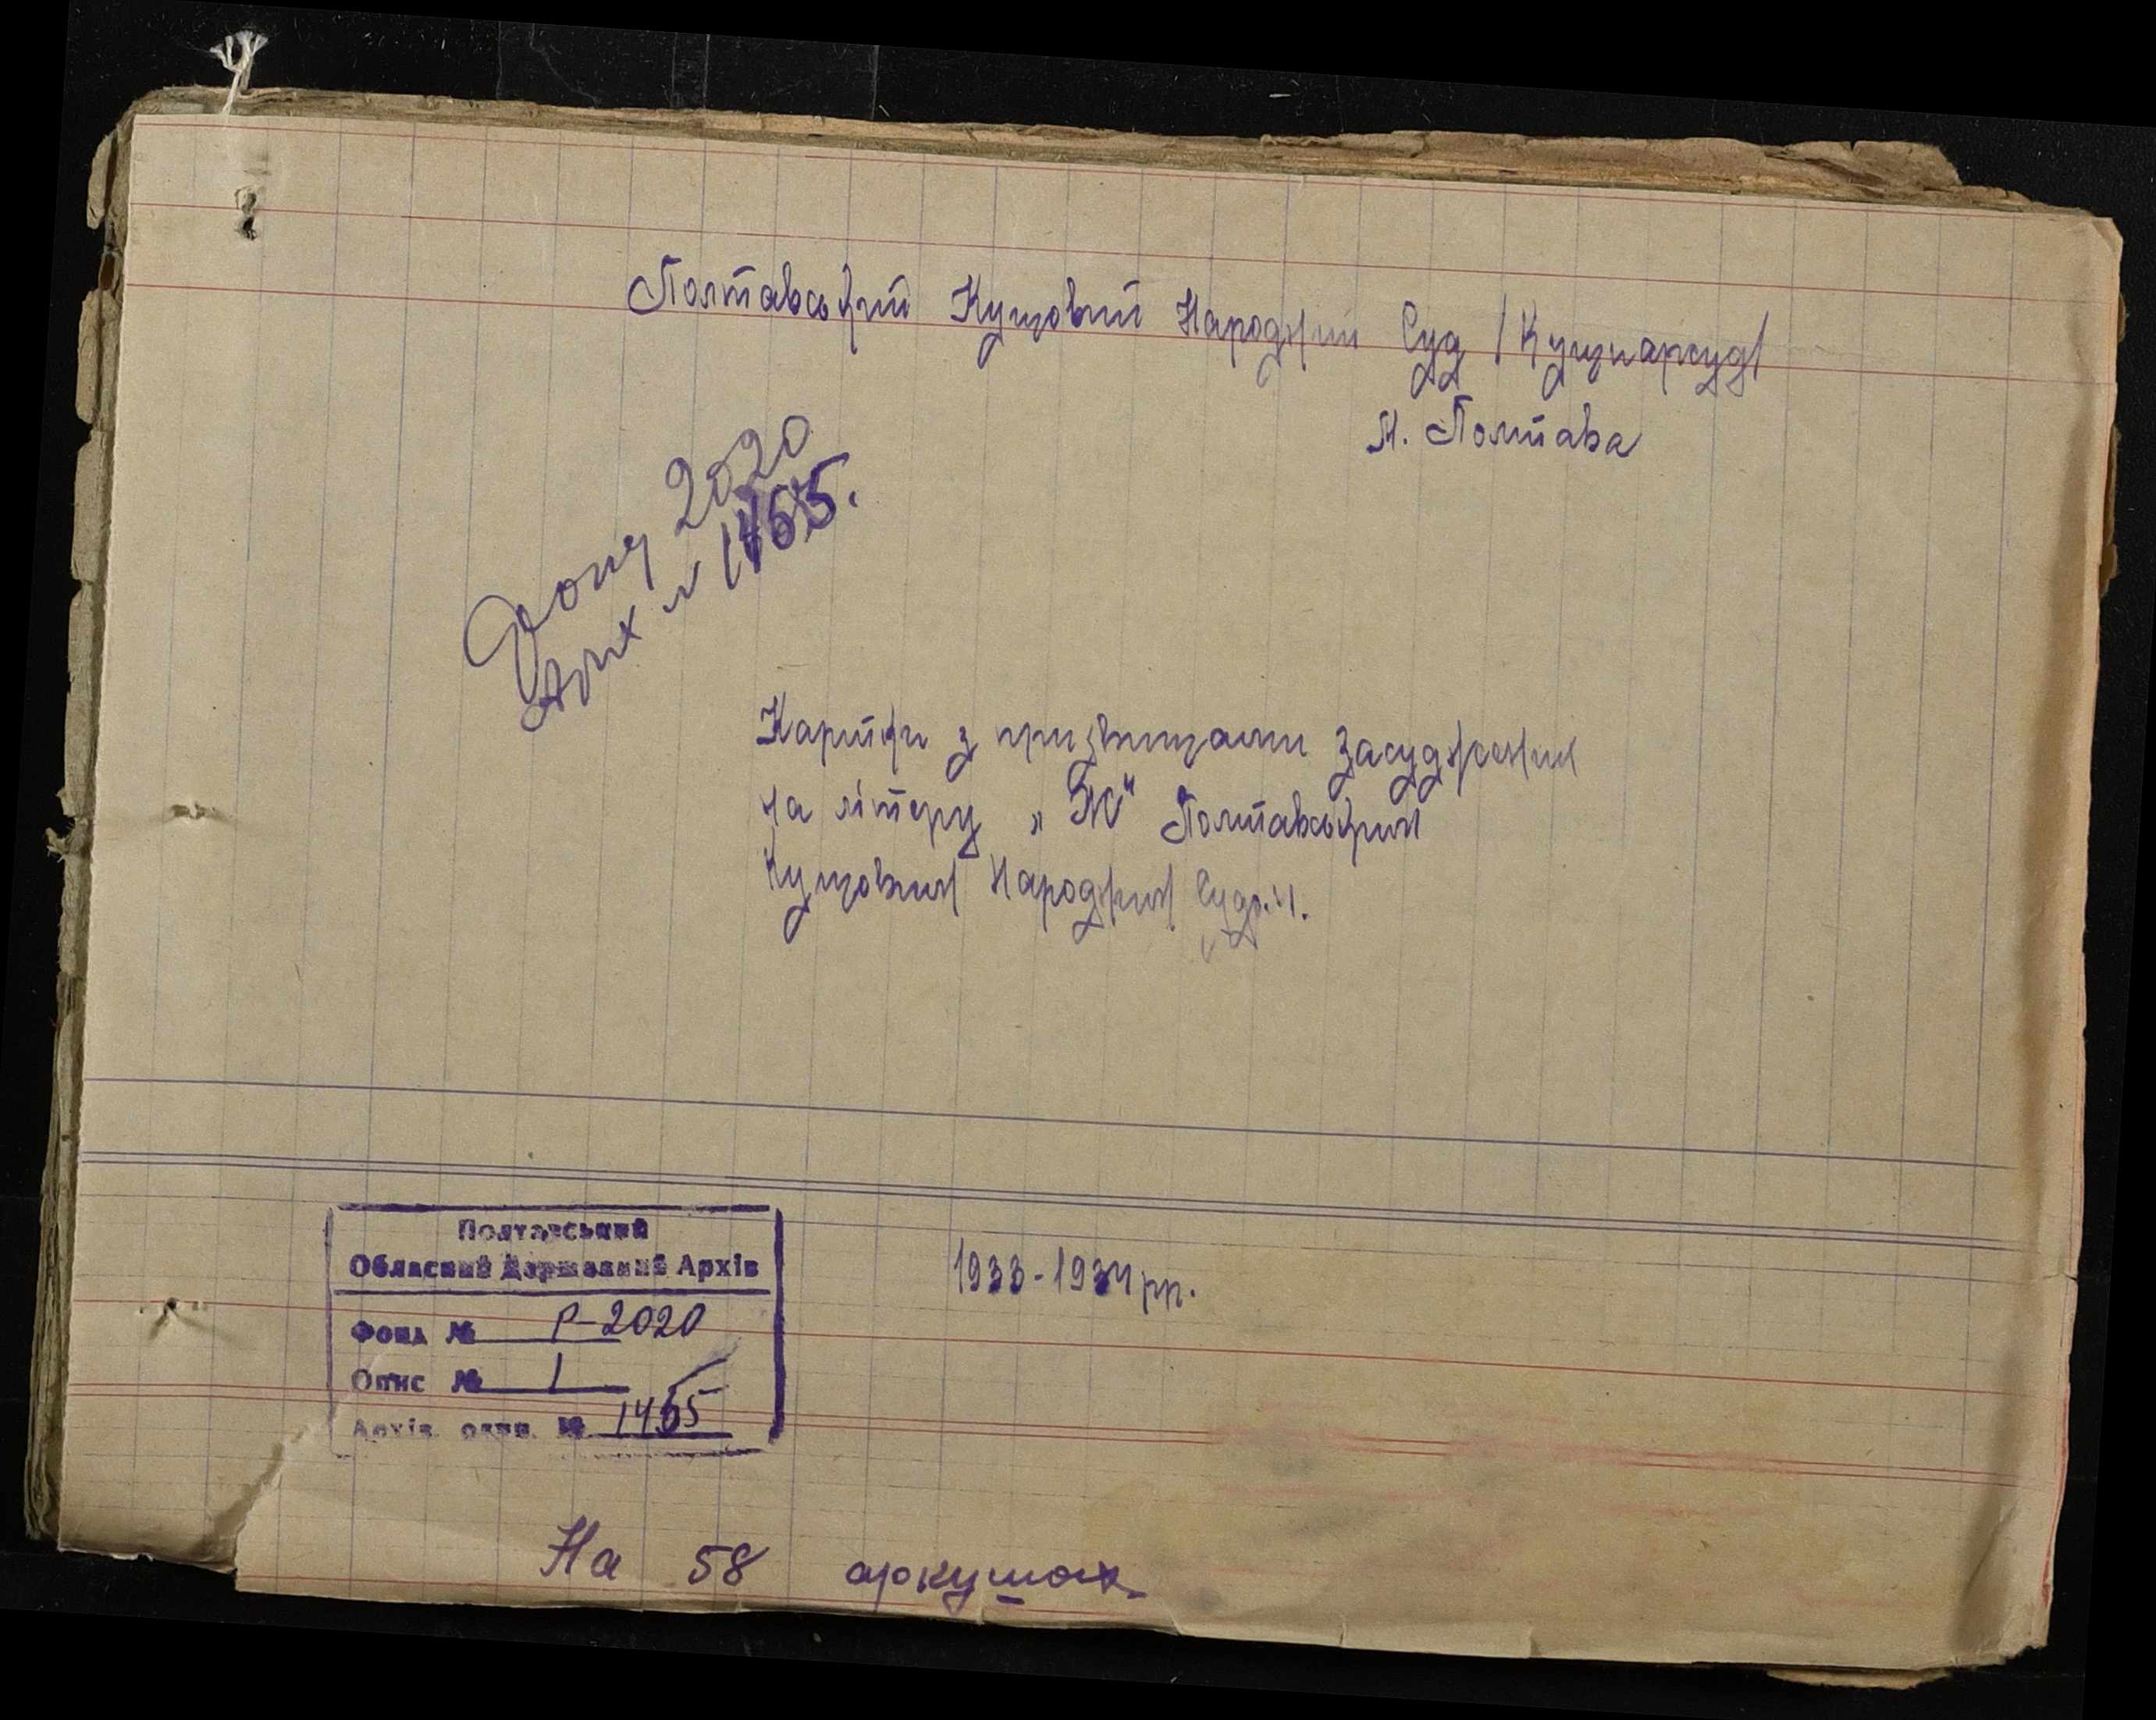 Полтавський Кущовий Народний Суд /Кущнарсуд/
м. Полтава
Фонд 2020
Арх № 1455.
Картки з призвищами засуджених
на літеру „Ж" Полтавським
Кущовим Народним Судом.
Полтавський
Обласний Державний Архів
Фонд № Р-2020
Опис № 1
Архів. один. № 1455
1933-1934 рр.
На 58 аркушах